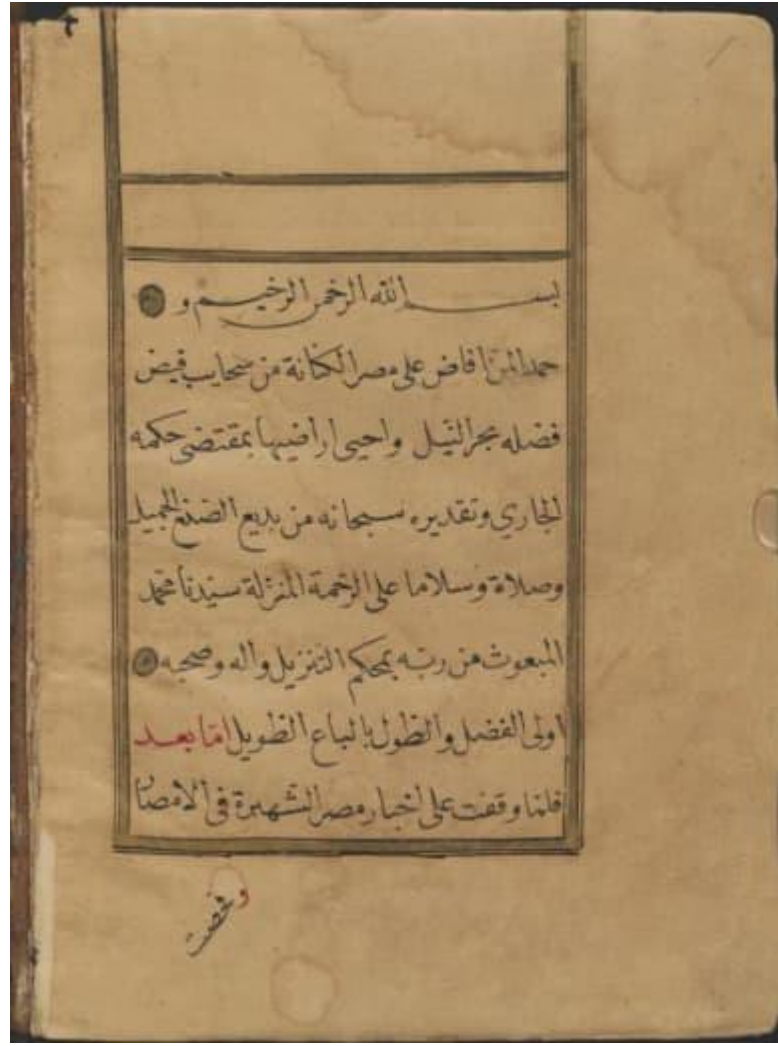 بسم الله الرحمن الرحيم و
حمدا لمن افاض على مصر الكنانة من سحايب فيض
فضله بحر النيل واحيى اراضيها بمقتضى حكمه
الجاري وتقديره سبحانه من بديع الصنع الجميل
وصلاة وسلاما على الرحمة المنزلة سيدنا محمد
المبعوث من ربه بمحكم التنزيل واله وصحبه
اولى الفضل والطول بالباع الطويل اما بعد
فلما وقفت على اخبار مصر الشهيرة في الامصار
وتفحصت